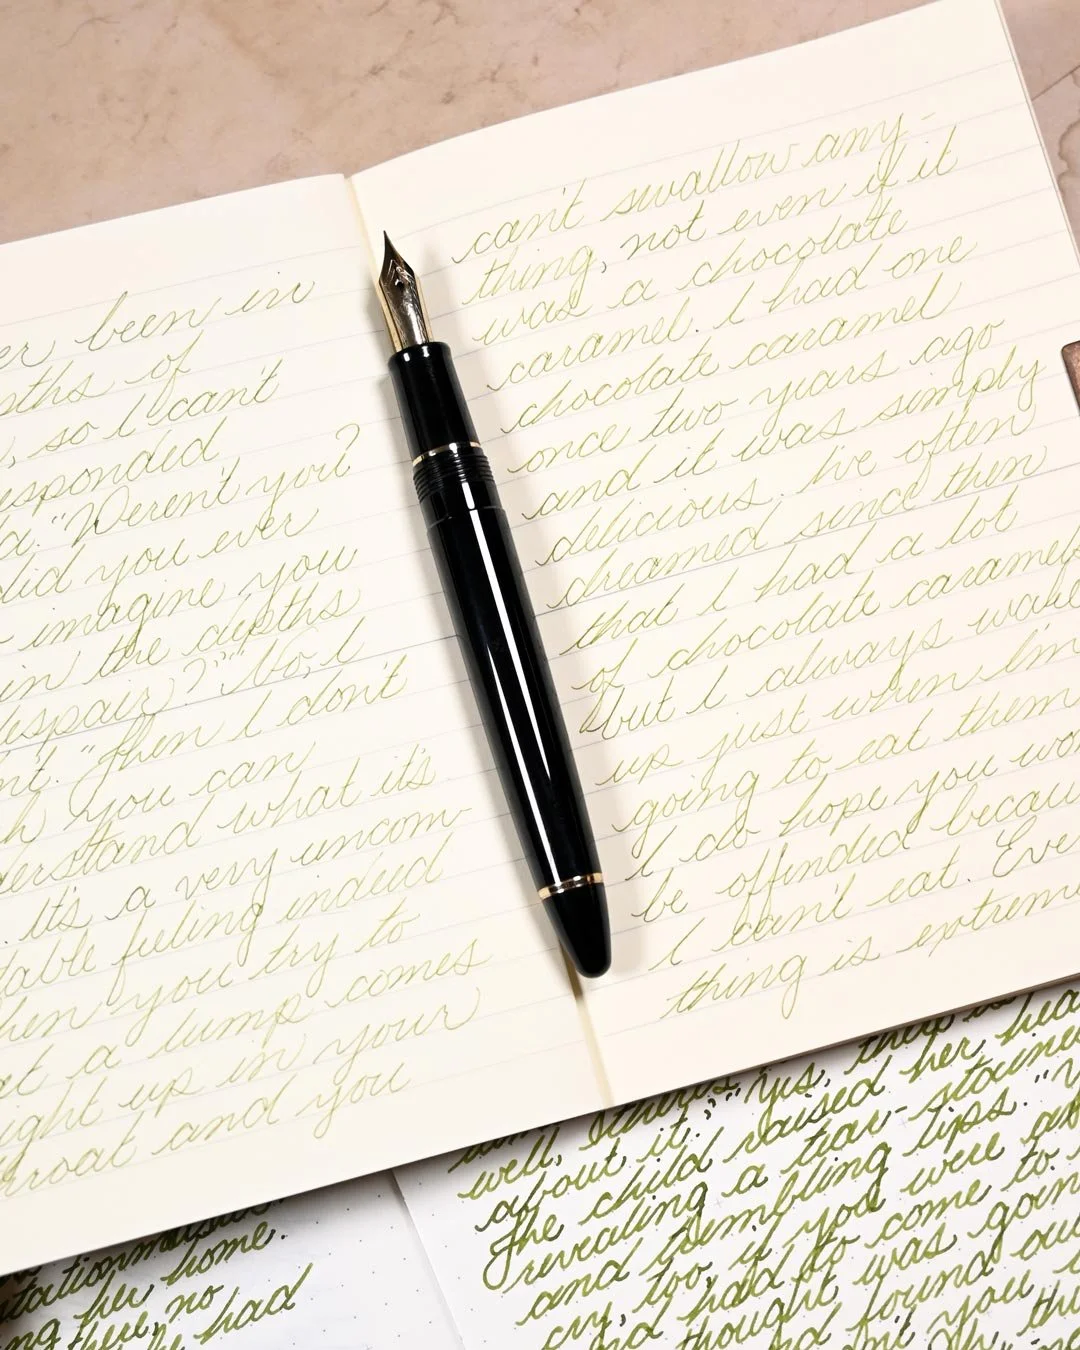 er been in
pths of
, so I can't
esponded
a. "Weren't you?
did you ever
imagine you
in the depths
espair?" "No, I
n't." "Then I don't
h you can
derstand what it's
. It's a very uncom-
table feeling indeed
hen you try to
at a lump comes
ight up in your
hroat and you
can't swallow any-
thing, not even if it
was a chocolate
caramel. I had one
chocolate caramel
once two years ago
and it was simply
delicious. I've often
dreamed since then
that I had a lot
of chocolate caramels
but I always wake
up just when I'm
going to eat them
I do hope you won
be offended becau
I can't eat. Ever
thing is extreme
her home.
there, no
he had
there is
well, there's." "Yes,
about it. her hea
The child raised
revealing a tear-staine
and trembling lips. "Y
cry, too, if you were a
had to come to
thought was goin
nd found ou